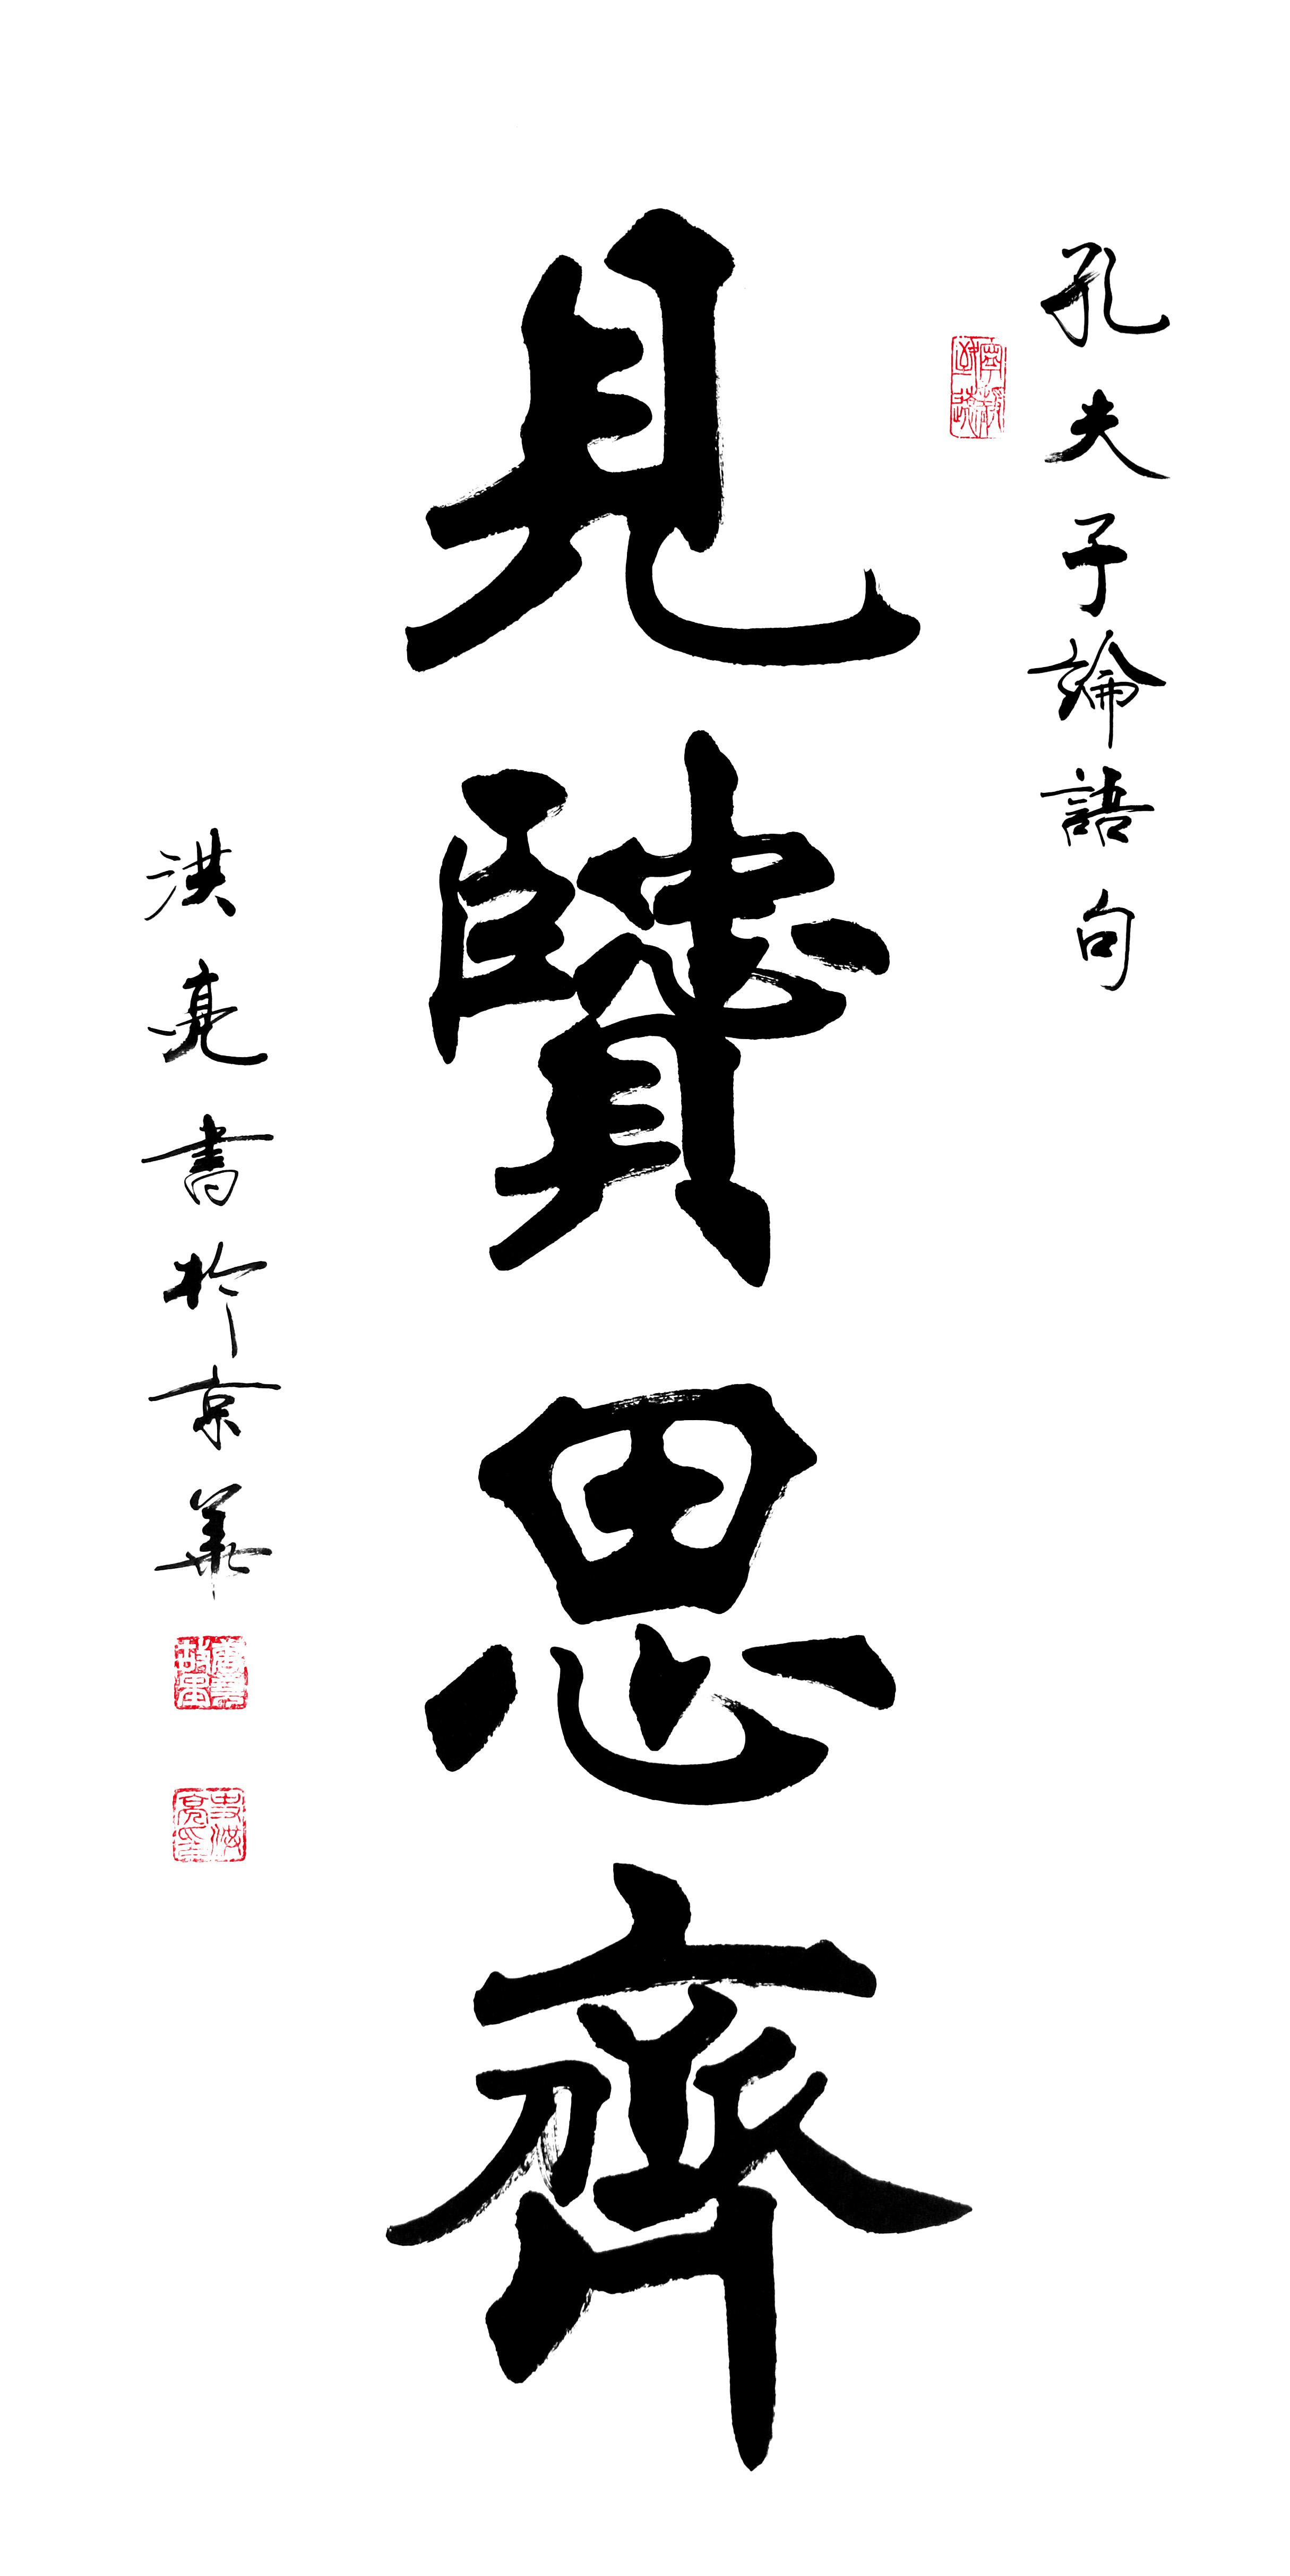 孔夫子論語句
見賢思齊
洪亮書於京華